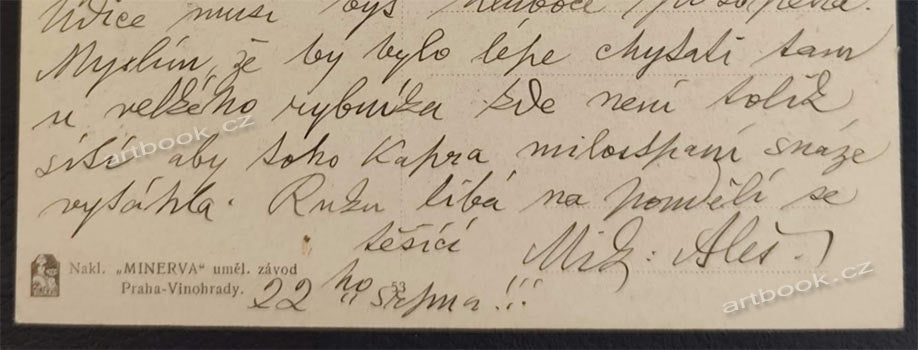 Udice musí býs hluboce
Myslím, že by bylo lépe chytati tam
u velkého rybníka kde není tolik
sítí aby toho Kapra milostpaní snáze
vytáhla. Ruku líbá na pondělí se
těšící Mik: Aleš.
22ho srpna!!!
Nakl. „MINERVA“ uměl. závod
Praha-Vinohrady.
53
artbook.cz
artbook.cz